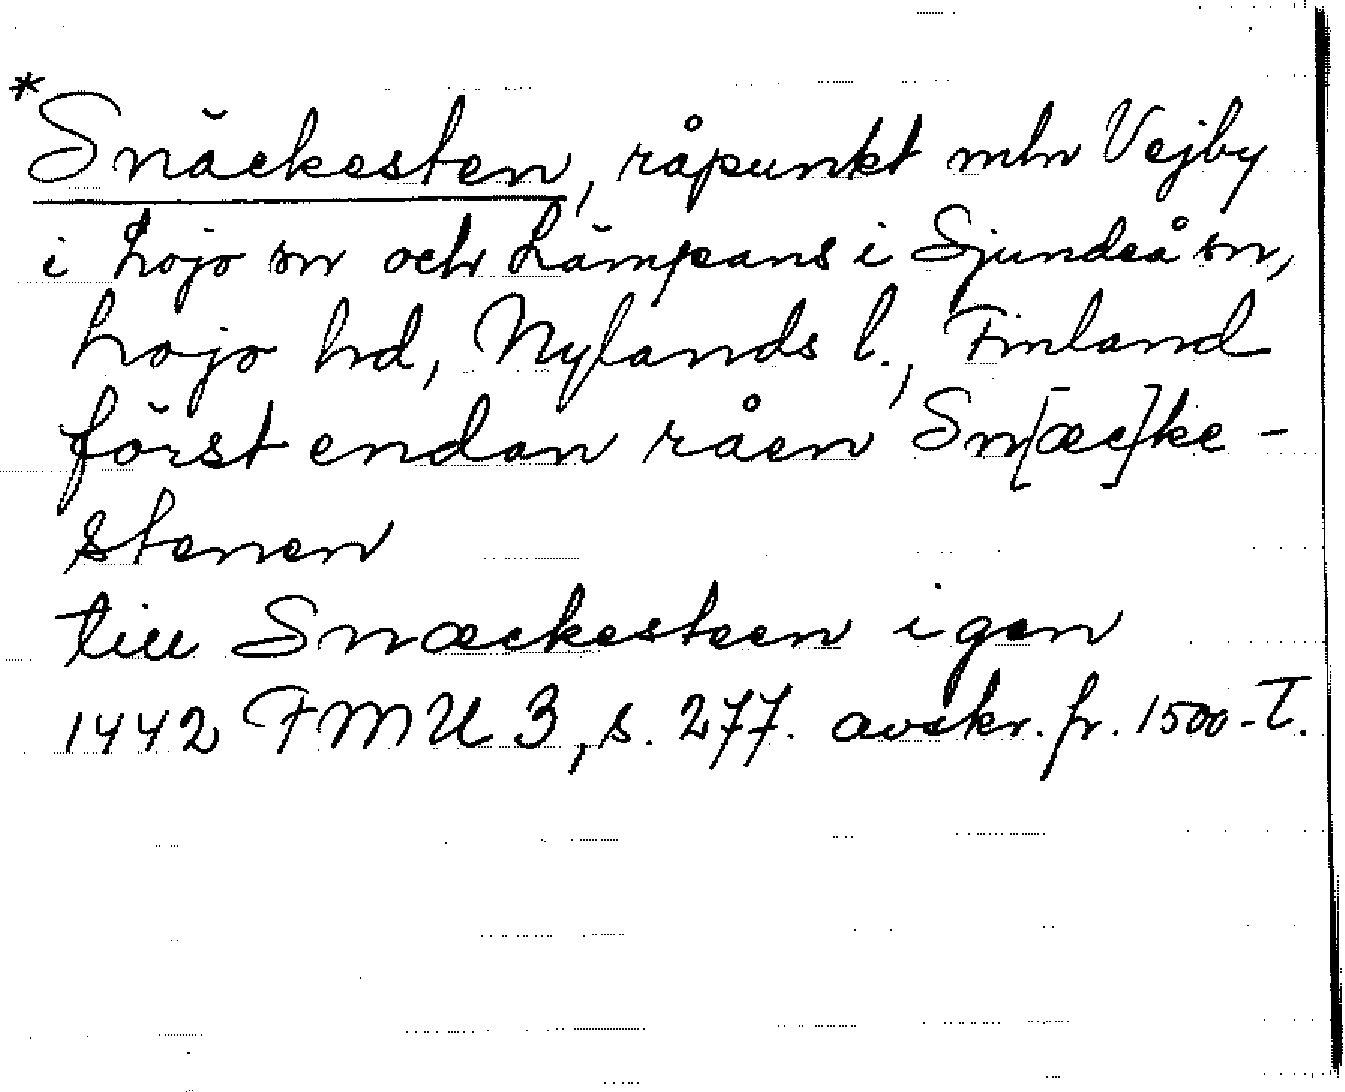 *Snäckesten, råpunkt mln Vejby
i Lojo sn och Lämpans i Sjundeå sn,
Lojo hd, Nylands l., Finland
först endan råen Sn[æc]ke-
stenen
till Snæckesteen igen
1442 FMU 3, s. 277. avskr. fr. 1500-T.